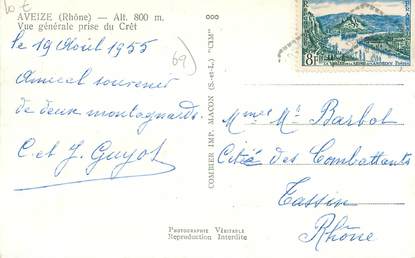 10 €
AVEIZE (Rhône) — Alt. 800 m.
Vue générale prise du Crêt
le 19 Août 1955
69
Amical souvenir
de deux montagnards.
C. et J. Guyot
COMBIER IMP. MACON (S.-et-L.) "CIM"
8F
Mme Mr Barbot
Cité des Combattants
Tassin
Rhône
PHOTOGRAPHIE VÉRITABLE
Reproduction Interdite